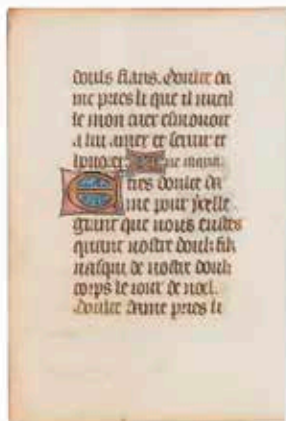 douls flans. Doulce da
me pries li que il vueil
le mon cuer esmouvoir
a lui amer et servir et
honorer. Ave maria.
Tres doulce da
me pour icelle
grant que vous eustes
quant vostre doulz filz
nasqui de vostre doulz
corps le iour de noel.
Doulce dame pries li